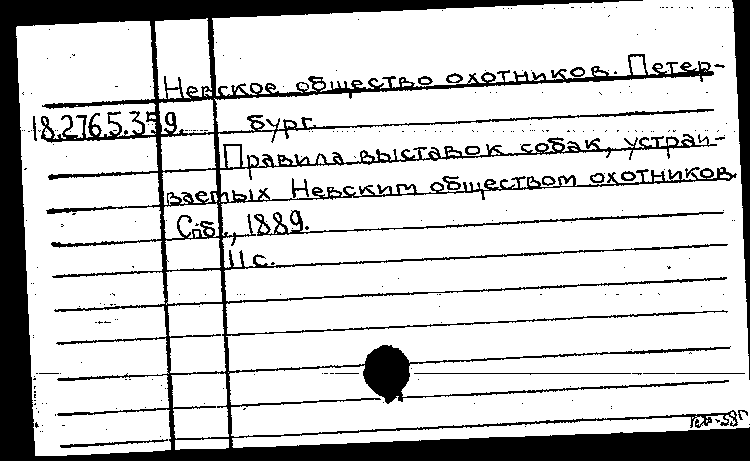 Невское общество охотников. Петер-
18.276.5.359. бург.
Правила выставок собак, устраи-
ваемых Невским обществом охотников.
Спб., 1889.
11 с.